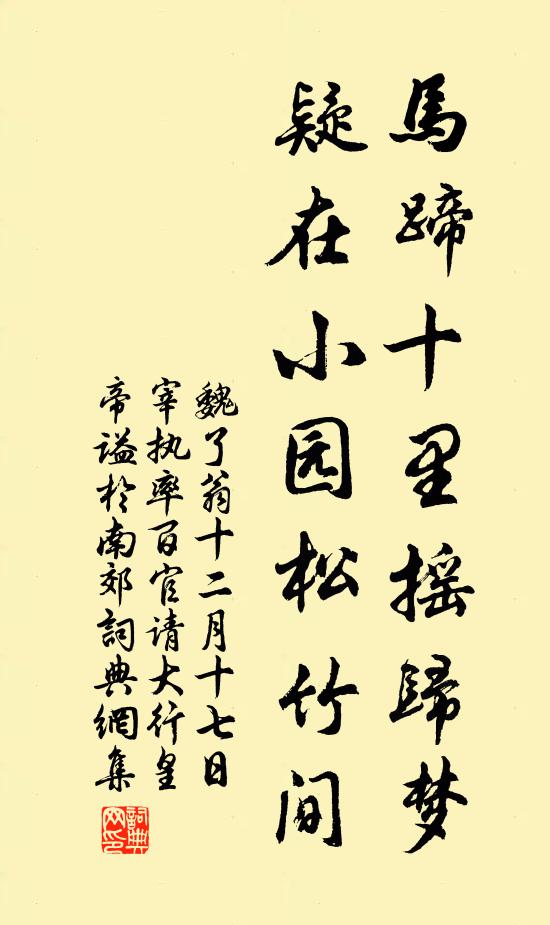 馬蹄十里摇歸梦
疑在小园松竹间
魏了翁十二月十七日
宰执率百官请大行皇
帝谥於南郊詞典網集
詞典
网印